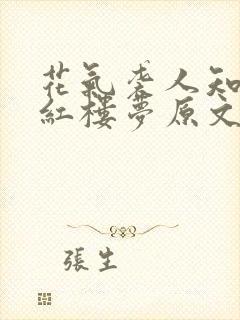 花氣襲人知
紅樓夢原文
張生